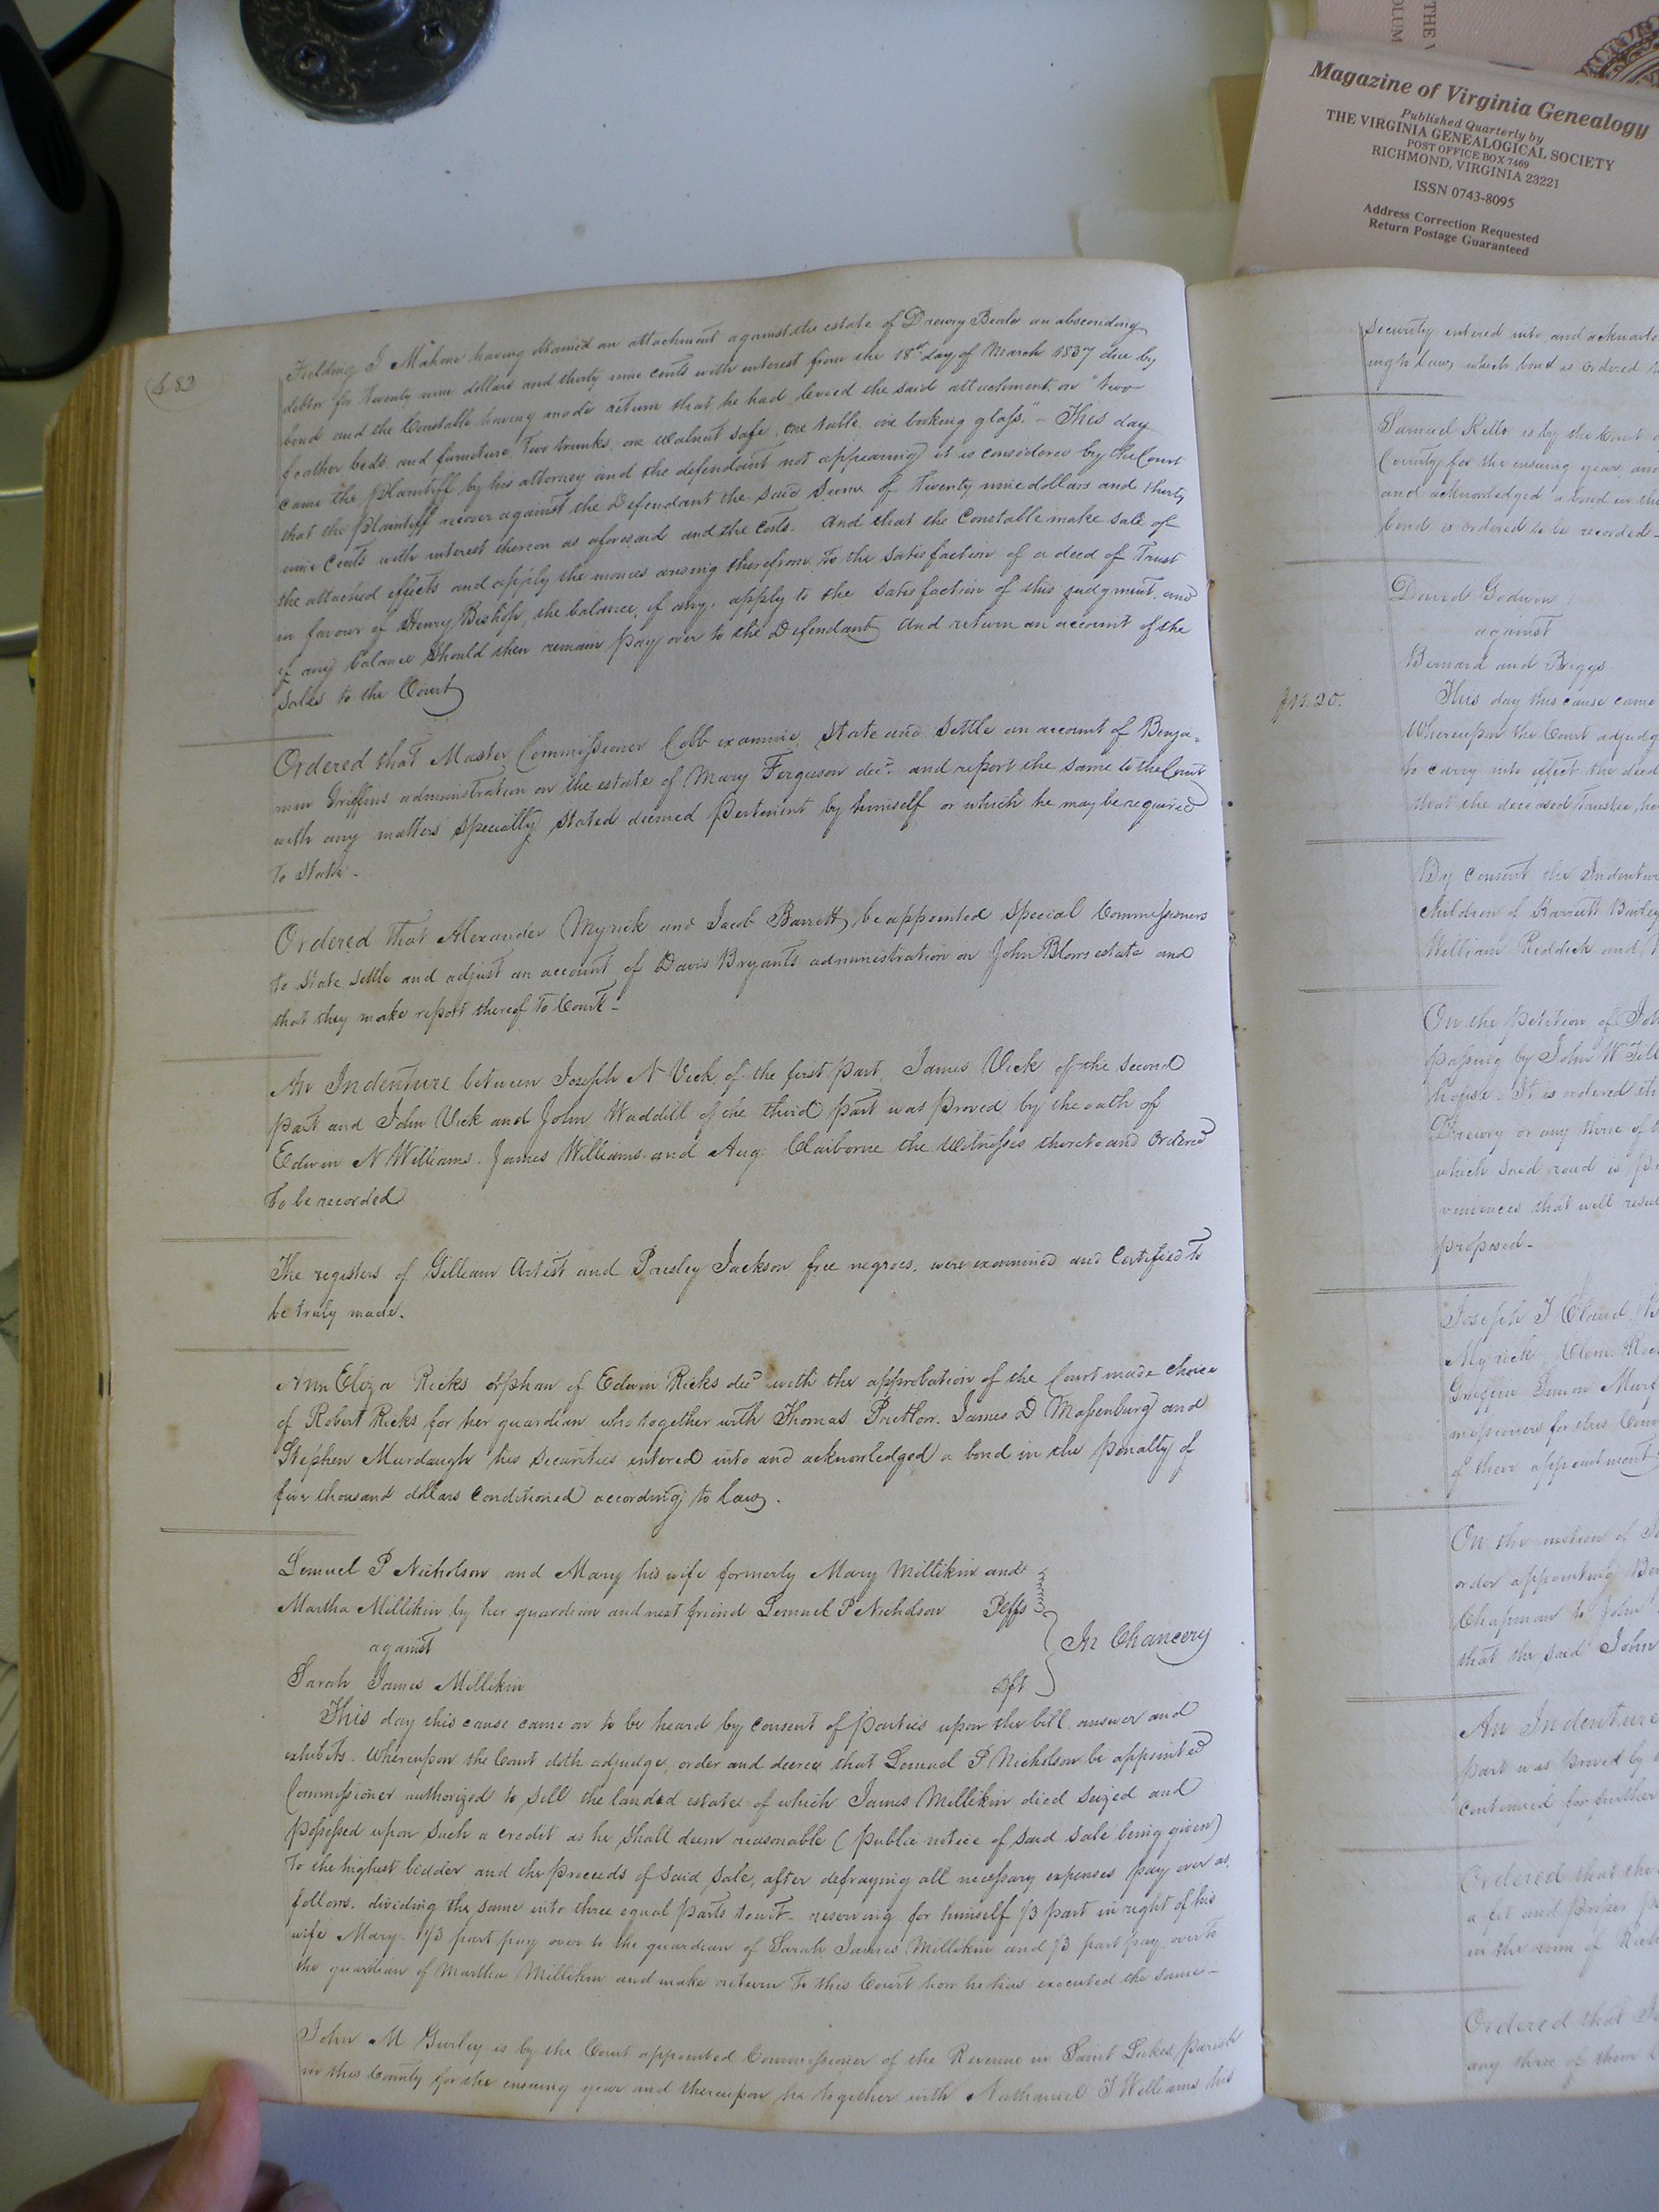 THE V
OLUM
Magazine of Virginia Genealogy
Published Quarterly by
THE VIRGINIA GENEALOGICAL SOCIETY
POST OFFICE BOX 7469
RICHMOND, VIRGINIA 23221
ISSN 0743-8095
Address Correction Requested
Return Postage Guaranteed
482
Fielding J Mahone having obtained an attachment against the estate of Drewry Beale an absconding
debtor for Twenty nine dollars and thirty nine cents with interest from the 18th day of March 1837 due by
bond and the Constable having made return that he had levied the said attachment on "two
feather beds and furniture, Two trunks, one walnut safe, one table, one looking glass." - This day
came the Plaintiff by his attorney and the defendant not appearing it is considered by the Court
that the Plaintiff recover against the Defendant the said sum of Twenty nine dollars and thirty
nine Cents with interest thereon as aforesaid and the Costs. And that the Constable make sale of
the attached effects and apply the monies arising therefrom to the satisfaction of a deed of Trust
in favour of Henry Bishop, the balance, if any, apply to the satisfaction of this judgment, and
if any balance should then remain pay over to the Defendant And return an account of the
Sales to the Court
Ordered that Master Commissioner Cobb examine, State and Settle an account of Benja-
min Griffins administration on the estate of Mary Ferguson decd. and report the same to the Court
with any matters specially stated deemed Pertinent by himself or which he may be required
to state -
Ordered that Alexander Myrick and Jacob Barrett be appointed Special Commissioners
to state settle and adjust an account of Davis Bryants administration on John Blows estate and
that they make report thereof to Court -
An Indenture between Joseph N Vick of the first part, James Vick of the second
part and John Vick and John Waddill of the third part was proved by the oath of
Edwin N Williams, James Williams and Aug. Claiborne the Witnesses thereto and Ordered
to be recorded
The registers of Gilliam Artist and Presley Jackson free negroes, were examined and Certified to
be truly made.
Ann Eliza Ricks orphan of Edwin Ricks decd with the approbation of the Court made choice
of Robert Ricks for her guardian who together with Thomas Pretlow, James D Massenburg and
Stephen Murdaugh his securities entered into and acknowledged a bond in the penalty of
five thousand dollars Conditioned according to law.
Lemuel P Nicholson and Mary his wife formerly Mary Millikin and
Martha Millikin by her guardian and next friend Lemuel P Nicholson Plffs
against
In Chancery
Sarah James Millikin Dft
This day this cause came on to be heard by consent of parties upon the bill, answer and
exhibits. Whereupon the Court doth adjudge, order and decree that Lemuel P Nicholson be appointed
Commissioner authorized to sell the landed estate of which James Millikin died seized and
possessed upon such a credit as he shall deem reasonable (public notice of said sale being given)
to the highest bidder and the proceeds of said sale, after defraying all necessary expenses pay over as
follows. dividing the same into three equal parts towit - reserving for himself 1/3 part in right of his
wife Mary. 1/3 part pay over to the guardian of Sarah James Millikin and 1/3 part pay over to
the guardian of Martha Millikin and make return to this Court how he has executed the same -
John M Gurley is by the Court appointed Commissioner of the Revenue in Saint Lukes Parish
in this County for the ensuing year and thereupon he together with Nathaniel T Williams his
security entered into and acknowle
ing to law, which bond is ordered
Samuel Kello is by the Court
County for the ensuing year and
and acknowledged a bond in the
bond is ordered to be recorded -
David Godwin
against
Bernard and Briggs
This day this cause came
Whereupon the Court adjudg
to carry into effect the deed
that the deceased Trustee, ha
By consent the Indenture
children of Harriett Bailey
William Reddick and
On the petition of Joh
passing by John W
house. It is ordered th
Drewry or any three of
which said road is pr
veniences that will resul
proposed -
Joseph T Claud
Myrick Clem
Griffin Simon Murf
missioners for this Coun
of their appointment
On the motion of
order appointing Ben
Chapman to John
that the said John
An Indenture
part was proved by
continued for further
Ordered that the
a fit and proper pe
in the room of
Ordered that
any three of them